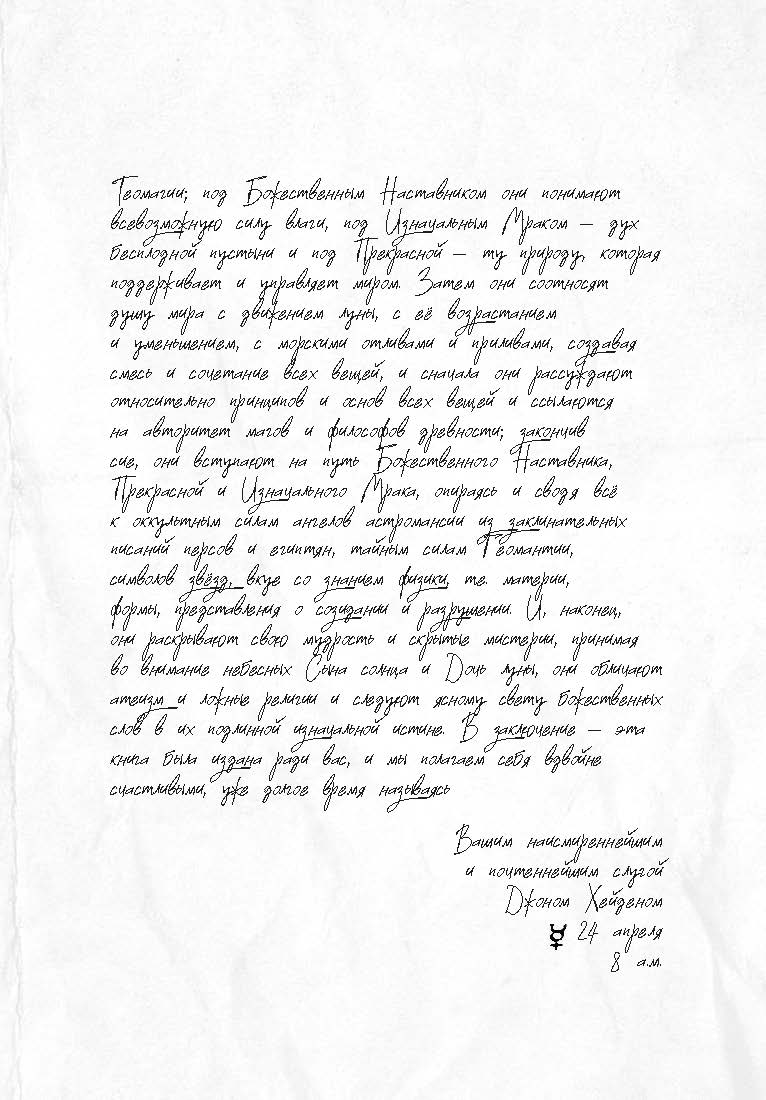 Геомагии; под Божественным Наставником они понимают
всевозможную силу влаги, под Изначальным Мраком — дух
бесплодной пустыни и под Прекрасной — ту природу, которая
поддерживает и управляет миром. Затем они соотносят
душу мира с движением луны, с её возрастанием
и уменьшением, с морскими отливами и приливами, создавая
смесь и сочетание всех вещей, и сначала они рассуждают
относительно принципов и основ всех вещей и ссылаются
на авторитет магов и философов древности; закончив
сие, они вступают на путь Божественного Наставника,
Прекрасной и Изначального Мрака, опираясь и сводя всё
к оккультным силам ангелов астромансии из заклинательных
писаний персов и египтян, тайным силам Геомантии,
символов звёзд, вкупе со знанием физики, т.е. материи,
формы, представления о созидании и разрушении. И, наконец,
они раскрывают свою мудрость и скрытые мистерии, принимая
во внимание небесных Сына солнца и Дочь луны, они обличают
атеизм и ложные религии и следуют ясному свету божественных
слов в их подлинной изначальной истине. В заключение — эта
книга была издана ради вас, и мы полагаем себя вдвойне
счастливыми, уже долгое время называясь
Вашим наисмиреннейшим
и почтеннейшим слугой
Джоном Хейденом
☿ 24 апреля
8 а.м.